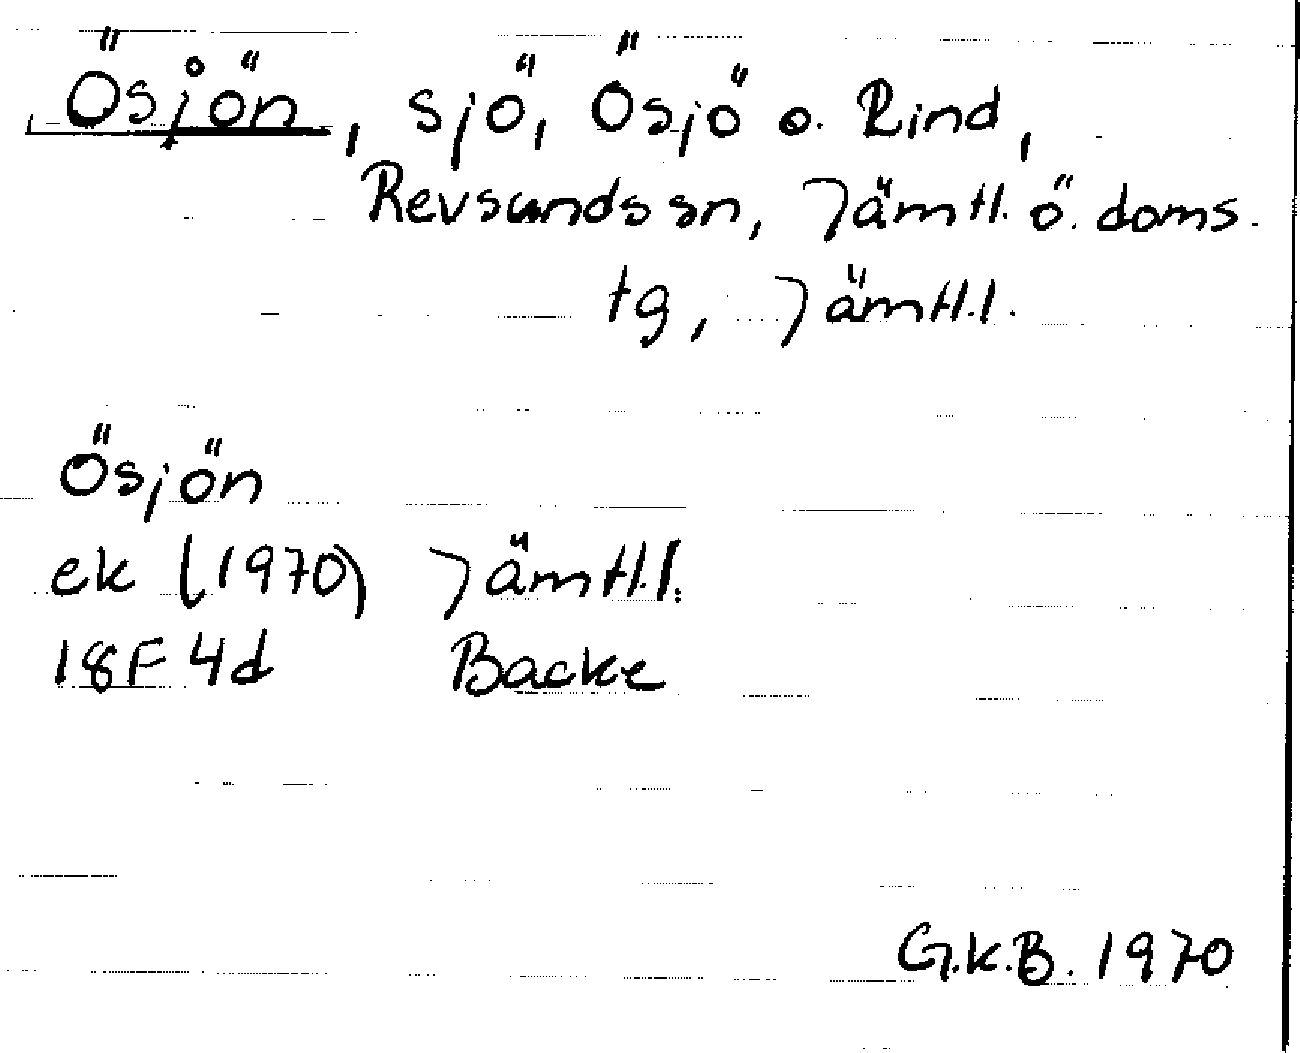 Ösjön, sjö, Ösjö o. Rind,
Revsunds sn, Jämtl. ö. doms.
tg, Jämtl.l.
Ösjön
ek (1970) Jämtl.l.
18F 4d Backe
G.K.B. 1970